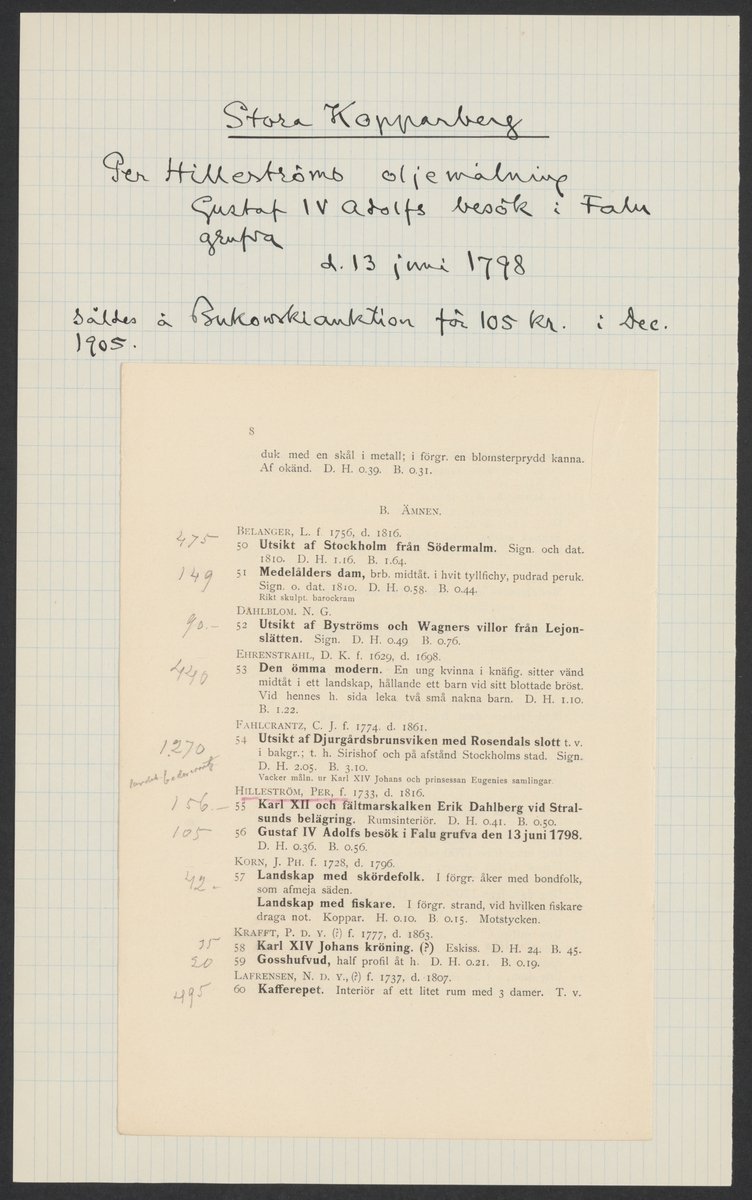 Stora Kopparberg
Per Hilleströms oljemålning
Gustaf IV Adolfs besök i Falu
grufva
d. 13 juni 1798
Såldes å Bukowskiauktion för 105 kr. i Dec.
1905.
8
duk med en skål i metall; i förgr. en blomsterprydd kanna.
Af okänd. D. H. 0.39. B. 0.31.
B. ÄMNEN.
BELANGER, L. f 1756, d. 1816.
475 50 Utsikt af Stockholm från Södermalm. Sign. och dat.
1810. D. H. 1.16. B. 1.64.
149 51 Medelålders dam, brb. midtåt. i hvit tyllfichy, pudrad peruk.
Sign. o. dat. 1810. D. H. 0.58. B. 0.44.
Rikt skulpt. barockram
DAHLBLOM. N. G.
90.– 52 Utsikt af Byströms och Wagners villor från Lejon-
slätten. Sign. D. H. 0.49 B. 0.76.
EHRENSTRAHL, D. K. f. 1629, d. 1698.
440 53 Den ömma modern. En ung kvinna i knäfig. sitter vänd
midtåt i ett landskap, hållande ett barn vid sitt blottade bröst.
Vid hennes h. sida leka två små nakna barn. D. H. 1.10.
B. 1.22.
FAHLCRANTZ, C. J. f. 1774. d. 1861.
1.270 54 Utsikt af Djurgårdsbrunsviken med Rosendals slott t. v.
i bakgr.; t. h. Sirishof och på afstånd Stockholms stad. Sign.
D. H. 2.05. B. 3.10.
Vacker måln. ur Karl XIV Johans och prinsessan Eugenies samlingar.
HILLESTRÖM, PER, f. 1733, d. 1816.
156.– 55 Karl XII och fältmarskalken Erik Dahlberg vid Stral-
sunds belägring. Rumsinteriör. D. H. 0.41. B. 0.50.
105 56 Gustaf IV Adolfs besök i Falu grufva den 13 juni 1798.
D. H. 0.36. B. 0.56.
KORN, J. PH. f. 1728, d. 1796.
42.– 57 Landskap med skördefolk. I förgr. åker med bondfolk,
som afmeja säden.
Landskap med fiskare. I förgr. strand, vid hvilken fiskare
draga not. Koppar. H. 0.10. B. 0.15. Motstycken.
KRAFFT, P. D. Y. (?) f. 1777, d. 1863.
35 58 Karl XIV Johans kröning. (?) Eskiss. D. H. 24. B. 45.
20 59 Gosshufvud, half profil åt h. D. H. 0.21. B. 0.19.
LAFRENSEN, N. D. Y., (?) f. 1737, d. 1807.
495 60 Kafferepet. Interiör af ett litet rum med 3 damer. T. v.